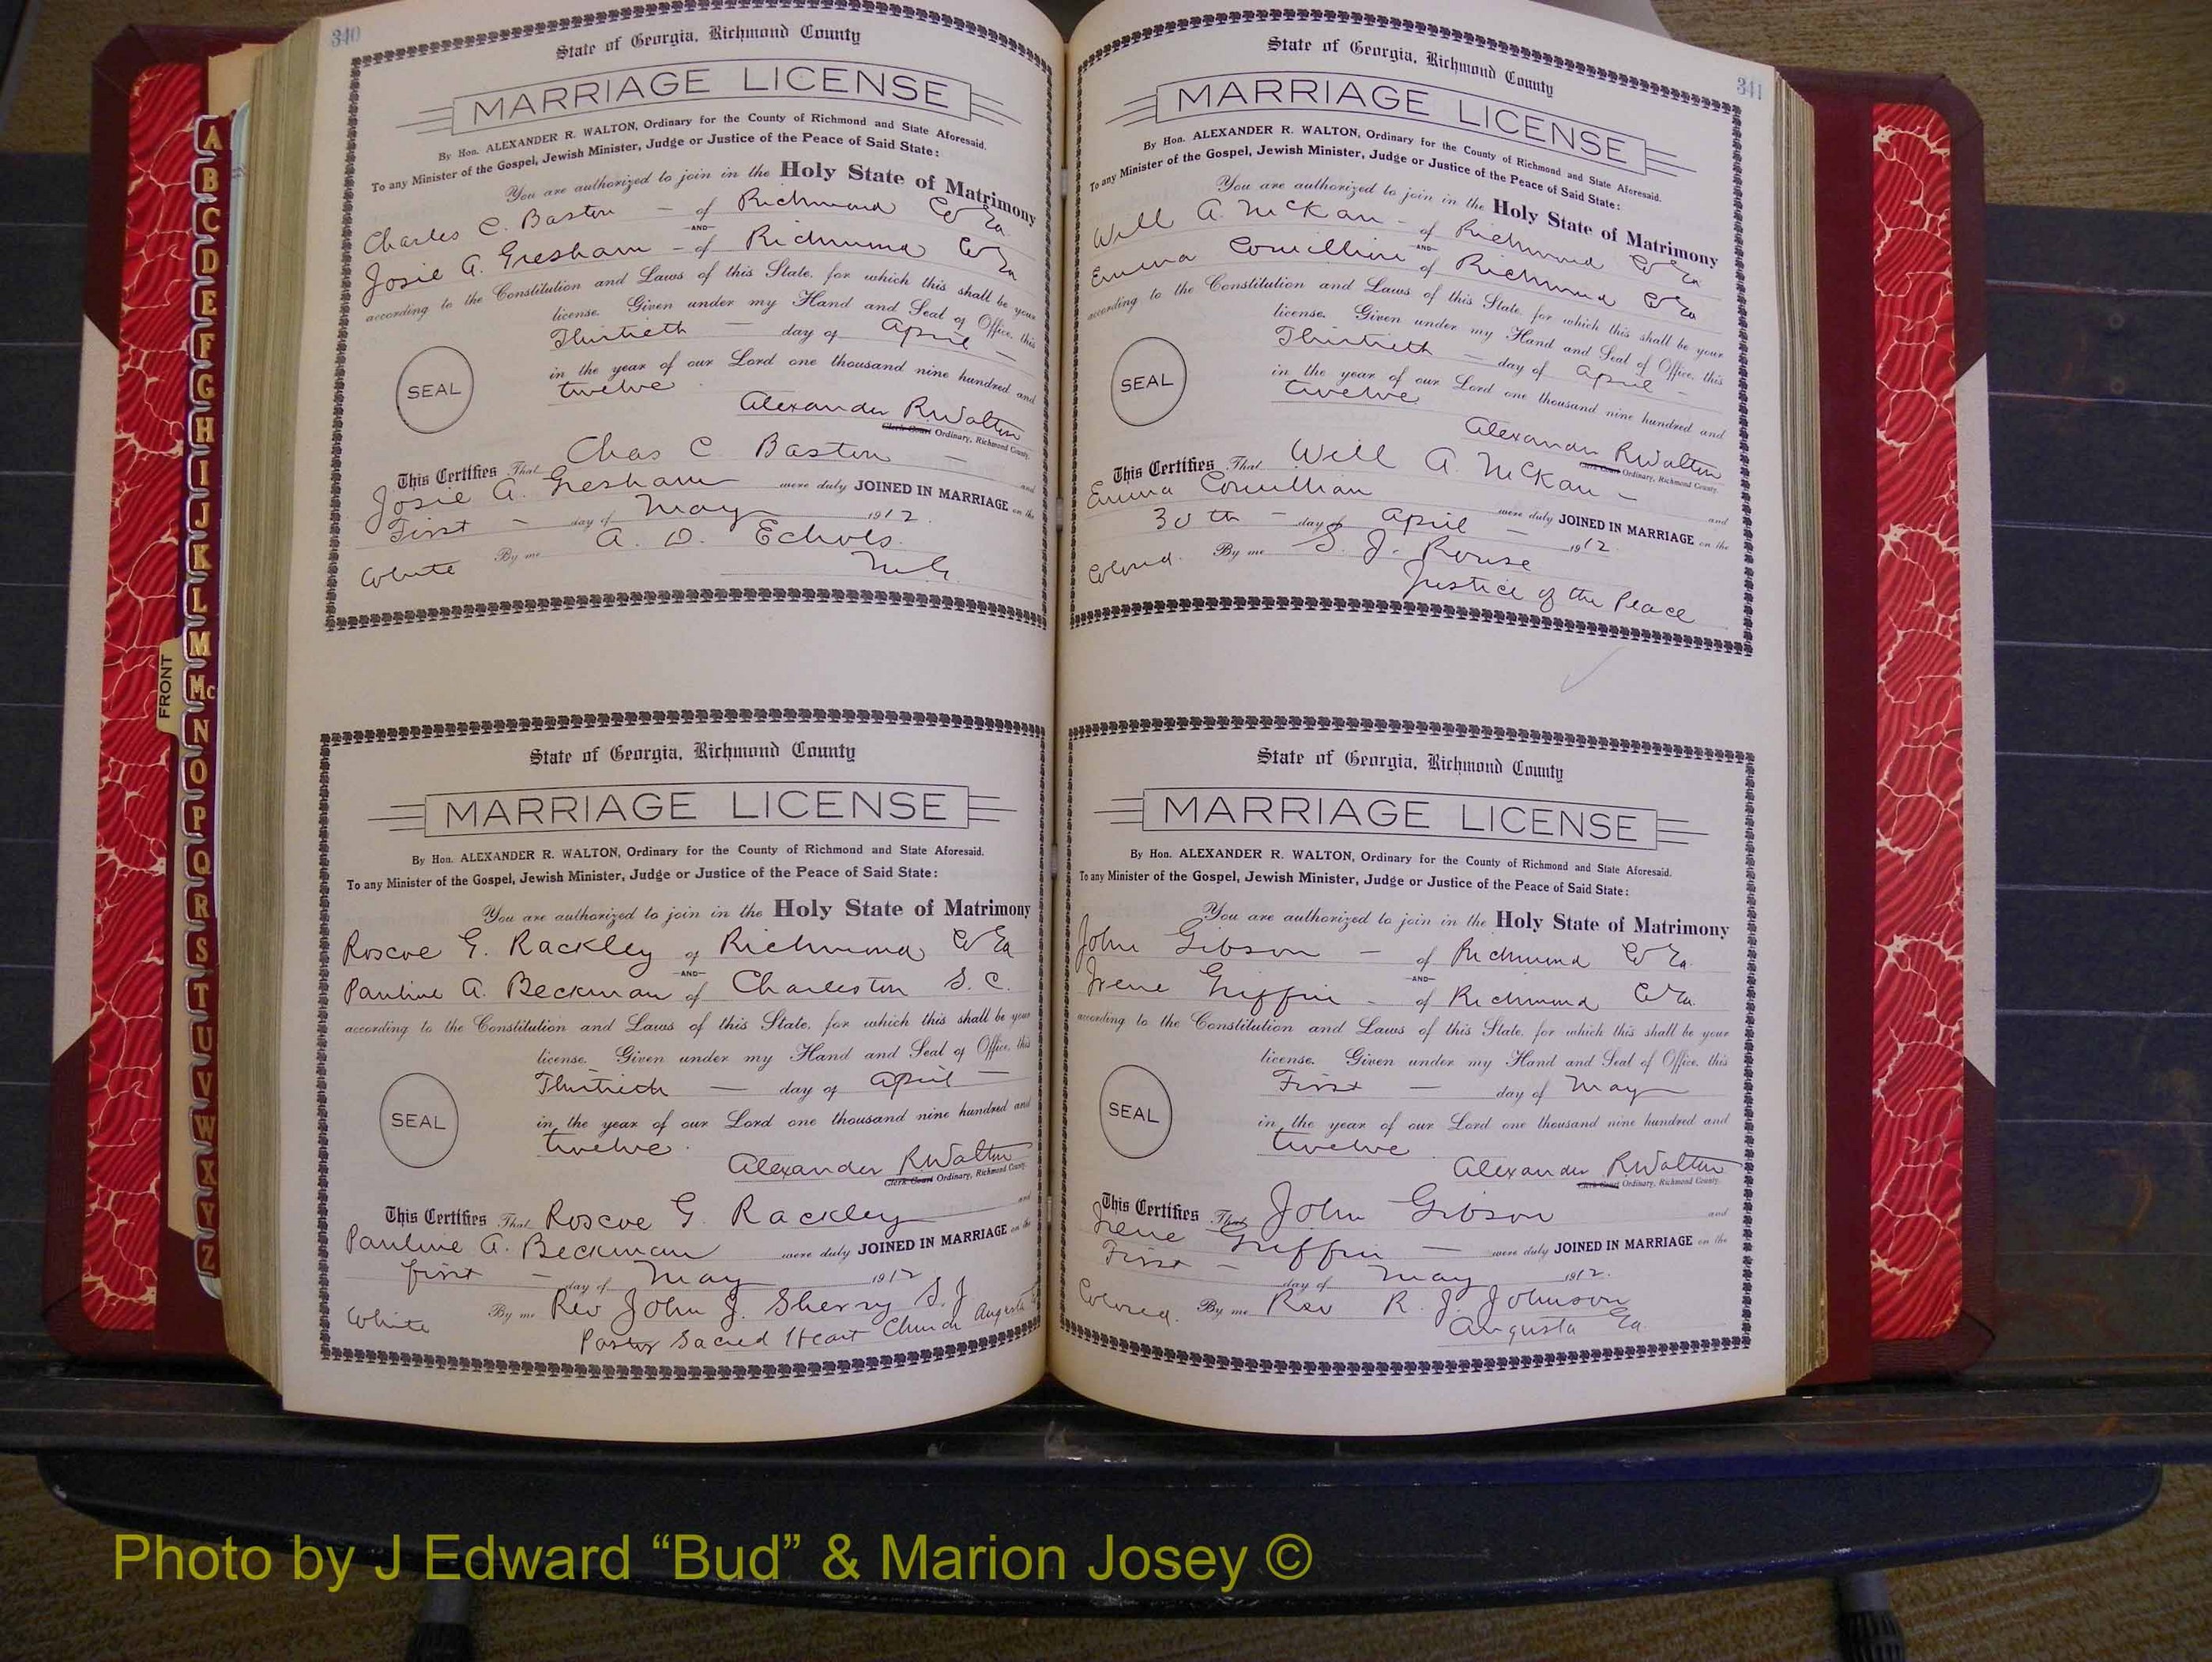 340
State of Georgia, Richmond County
MARRIAGE LICENSE
By Hon. ALEXANDER R. WALTON, Ordinary for the County of Richmond and State Aforesaid.
To any Minister of the Gospel, Jewish Minister, Judge or Justice of the Peace of Said State:
You are authorized to join in the Holy State of Matrimony
Charles C. Baston - of Richmond Co Ga
-AND-
Josie A. Gresham - of Richmond Co Ga
according to the Constitution and Laws of this State, for which this shall be your
license. Given under my Hand and Seal of Office, this
Thirtieth - day of April -
in the year of our Lord one thousand nine hundred and
twelve.
SEAL
Alexander R Walton
Clerk Court Ordinary, Richmond County.
This Certifies That Chas C Baston - and
Josie A. Gresham were duly JOINED IN MARRIAGE on the
First - day of May 1912.
By me A. D. Echols.
White M.G.
State of Georgia, Richmond County
MARRIAGE LICENSE
By Hon. ALEXANDER R. WALTON, Ordinary for the County of Richmond and State Aforesaid.
To any Minister of the Gospel, Jewish Minister, Judge or Justice of the Peace of Said State:
You are authorized to join in the Holy State of Matrimony
Roscoe G. Rackley of Richmond Co Ga
-AND-
Pauline A. Beckman of Charleston S. C.
according to the Constitution and Laws of this State, for which this shall be your
license. Given under my Hand and Seal of Office, this
Thirtieth - day of April -
in the year of our Lord one thousand nine hundred and
twelve.
SEAL
Alexander R Walton
Clerk Court Ordinary, Richmond County.
This Certifies That Roscoe G. Rackley and
Pauline A. Beckman were duly JOINED IN MARRIAGE on the
first - day of May 1912
By me Rev John J. Sherry S. J
White Pastor Sacred Heart Church Augusta Ga
341
State of Georgia, Richmond County
MARRIAGE LICENSE
By Hon. ALEXANDER R. WALTON, Ordinary for the County of Richmond and State Aforesaid.
To any Minister of the Gospel, Jewish Minister, Judge or Justice of the Peace of Said State:
You are authorized to join in the Holy State of Matrimony
Will A. McKan - of Richmond Co Ga
-AND-
Emma of Richmond Co Ga
according to the Constitution and Laws of this State, for which this shall be your
license. Given under my Hand and Seal of Office, this
Thirtieth - day of April -
in the year of our Lord one thousand nine hundred and
twelve.
SEAL
Alexander R Walton
Clerk Court Ordinary, Richmond County.
This Certifies That Will A. McKan - and
Emma were duly JOINED IN MARRIAGE on the
30th - day of April - 1912.
Colored. By me S. J. Rouse
Justice of the Peace
State of Georgia, Richmond County
MARRIAGE LICENSE
By Hon. ALEXANDER R. WALTON, Ordinary for the County of Richmond and State Aforesaid.
To any Minister of the Gospel, Jewish Minister, Judge or Justice of the Peace of Said State:
You are authorized to join in the Holy State of Matrimony
John Gibson - of Richmond Co Ga.
-AND-
Irene Griffin - of Richmond Co Ga.
according to the Constitution and Laws of this State, for which this shall be your
license. Given under my Hand and Seal of Office, this
First - day of May
in the year of our Lord one thousand nine hundred and
twelve.
SEAL
Alexander R Walton
Clerk Court Ordinary, Richmond County.
This Certifies That John Gibson and
Irene Griffin - were duly JOINED IN MARRIAGE on the
First - day of May 1912.
Colored. By me Rev R. J. Johnson
Augusta Ga.
A
B
C
D
E
F
G
H
I
J
K
L
M
Mc
N
O
P
Q
R
S
T
U
V
W
X
Y
Z
FRONT
Photo by J Edward “Bud” & Marion Josey ©